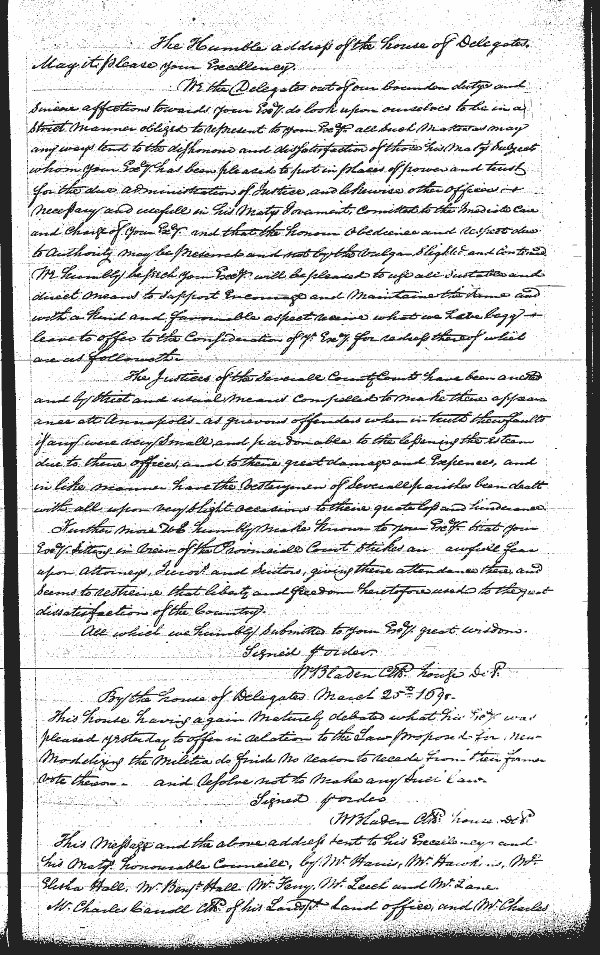 The Humble address of the house of Delegates.
May it please your Excellency.
We the Delegates out of our bounden dutys and
Sincere affections towards your Exc.y do look upon ourselves to be in a
Strict manner obliged to represent to your Exc.y all Such Matters as may
any ways tend to the dishonour and dissatisfaction of those his Matys Subjects
whom your Exc.y has been pleased to put in places of power and trust
for the due administration of Justice, and likewise other officers
necessary and usefull in his Matys Governent, Comitted to the imediate Care
and Charge of your Exc.y and that the honour Obedience and respect due
to Authority may be preserved and not by the Vulgar Slighted and Contemned
We humbly beseech your Exc.y will be pleased to use all Suitable and
direct means to Support Encourage and Maintaine the Same and
with a kind and favourable aspect receive what we here begg
leave to offer to the Consideration of yr Exc.y for redress thereof which
are as followeth
The Justices of the Severall County Courts have been
and by Strict and usual means Compelled to make there appear
ance att Annapolis as grievous offenders when in truth their faults
if any were very Small and pardonable to the lessening the esteem
due to there offices, and to there great damage and Expences, and
in like manner have the Vestrymen of Severall parishes been dealt
with all upon very Slight occasions to theire great loss and hinderance
Further more We humbly make known to your Exc.y that your
Exc.y Sitting in view of the Provinciall Court Strikes an awfull fear
upon Attorneys, Juro.rs and Suitors, giving there attendance there, and
Seems to restraine that liberty and freedom heretofore used to the great
dissatisfaction of the Country.
All which we humbly Submitted to your Exc.y great wisdom.
Signed p order
W Bladen Clk. house Del.
By the house of Delegates March 25th 1698.
This house having again Maturely debated what his Exc.y was
pleased yesterday to offer in relation to the Law proposed for new
Modelizing the Militia do finde no reason to recede from their former
vote thereon and resolve not to make any Such Law.
Signed p order
W Bladen Clk. house Del.
This Message and the above address sent to his Excellency and
his Matys honourable Councill, by Mr Harris, Mr Hawkins, Mr
Elisha Hall, Mr Benj.a Hall Mr Ferry, Mr Leech and Mr Lane.
Mr Charles Carroll Clk. of his Landsp.s Land office, and Mr Charles